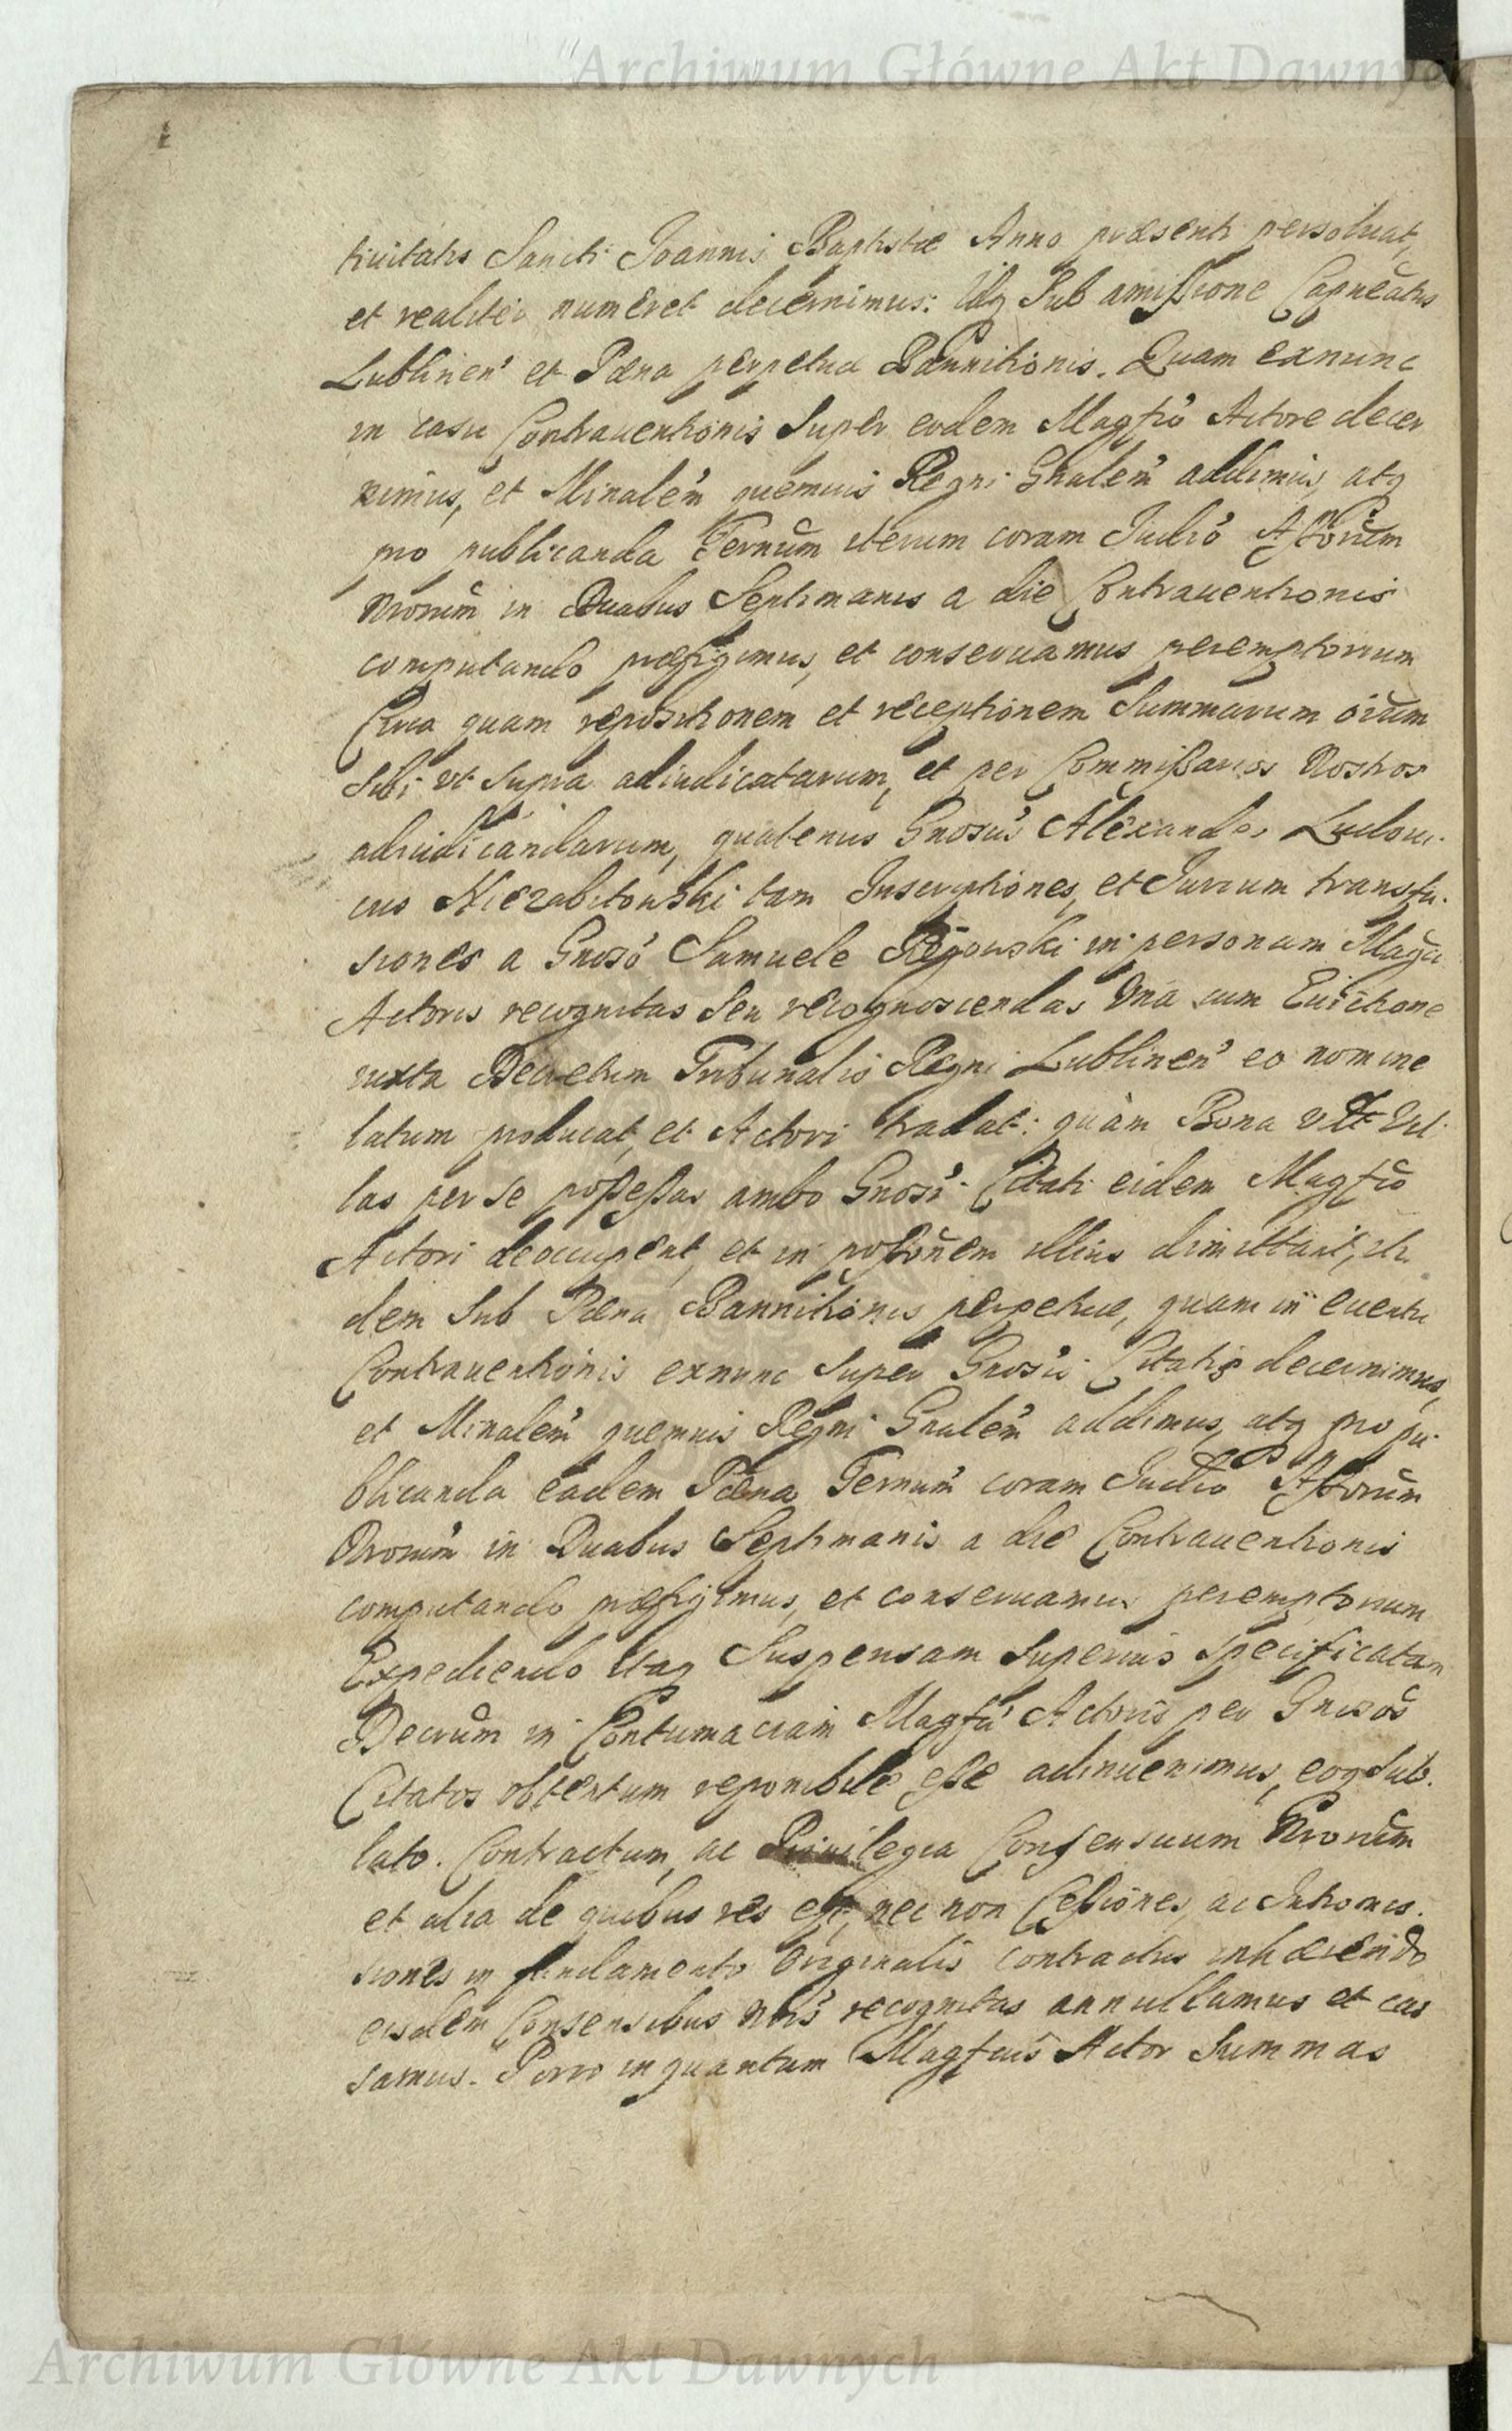 Archiwum Główne Akt Dawnych
tiuitatis Sancti Joannis Baptistæ Anno præsenti persoluat,
et realiter numeret decernimus: Idq Sub amissione Capneātus
Lublinen̄ et Pæna perpetua Bannitionis. Quam exnunc
in casu Contrauentionis Super eodem Magfcō Actore decer
nimus, et Minalēm quemuis Regni Gnalēm addimus, atq
pro publicanda Ternūm iterum coram Judiō Assorūm
Nrorum in Duabus Septimanis a die Contrauentionis
computando præfigimus, et conseruamus peremptorium
Circa quam repositionem et receptionem Summarum oīum
Sibi vt supra adiudicatarum, et per Commissarios Nostros
adiudicandarum, quatenus Gnosūs Alexander Ludoui.
cus Niezabitowski tam Inscriptiones, et Jurium transfu.
siones a Gnosō Samuele Regowski in personam Magci
Actoris recognitas Seu recognoscendas Vna cum Euictione
iuxta Decretum Tribunalis Regni Lublinen̄ eo nomine
latum producat, et Actori tradat: quàm Bona Vil
las per se possessas ambo Gnosī Citati eidem Magfcō
Actori deoccupent, et in possōnem illius dimittant, iti
dem Sub Pæna Bannitionis perpetuæ, quam in euentu
Contrauentionis exnunc Super Gnosis Citatis decernimus,
et Minalēm quemuis Regni Gnalēm addimus, atq pro pu.
blicanda eadem Pæna Ternūm coram Judiō Assorūm
Nrorūm in Duabus Septimanis a die Contrauentionis
computando præfigimus, et conseruamus peremptorium
Expediendo itaq Suspensam Superius Specificatam
Decrūm in Contumaciam Magfci Actoris per Gnosōs
Citatos obtentum reponibile esse adinuenimus, eoq Sub.
lato. Contractum, ac Priuilegia Consensuum Nrorūm
et alia de quibus res est, nec non Cessiones, ac Intromis.
siones in fundamento Originalis contractus inhærendo
eisdem Consensibus Nrīs recognitas annullamus et cas
samus. Porro in quantum Magfcus Actor Summas
Archiwum Główne Akt Dawnych